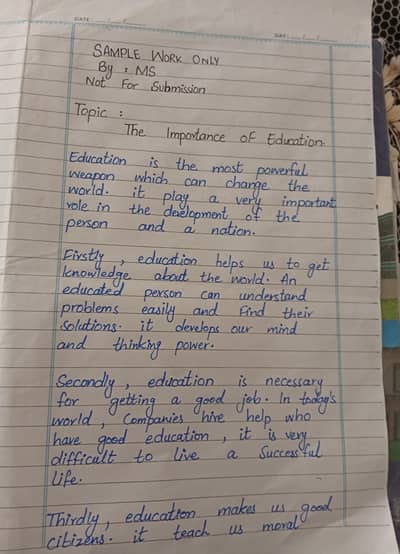 DATE
DATE
SAMPLE WORK ONLY
By : MS
Not For Submission
Topic :
The Importance of Education
Education is the most powerful
weapon which can change the
world. it play a very important
role in the development of the
person and a nation.
Firstly, education helps us to get
knowledge about the world. An
educated person can understand
problems easily and find their
solutions. it develops our mind
and thinking power.
Secondly, education is necessary
for getting a good job. In today's
world, Companies hire help who
have good education, it is very
difficult to live a Successful
life.
Thirdly, education makes us good
citizens. it teach us moral